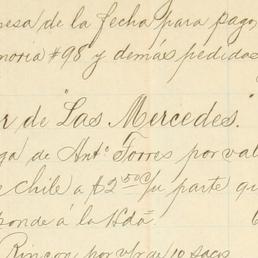 pesa de la fecha para pagos
moria #98 y demás pedidos
r de "Las Mercedes."
ga de Antº Torres por val
e chile a $2.50 c/u parte qu
ponde á la Hda
Rincon, por v/r de 10 sacos